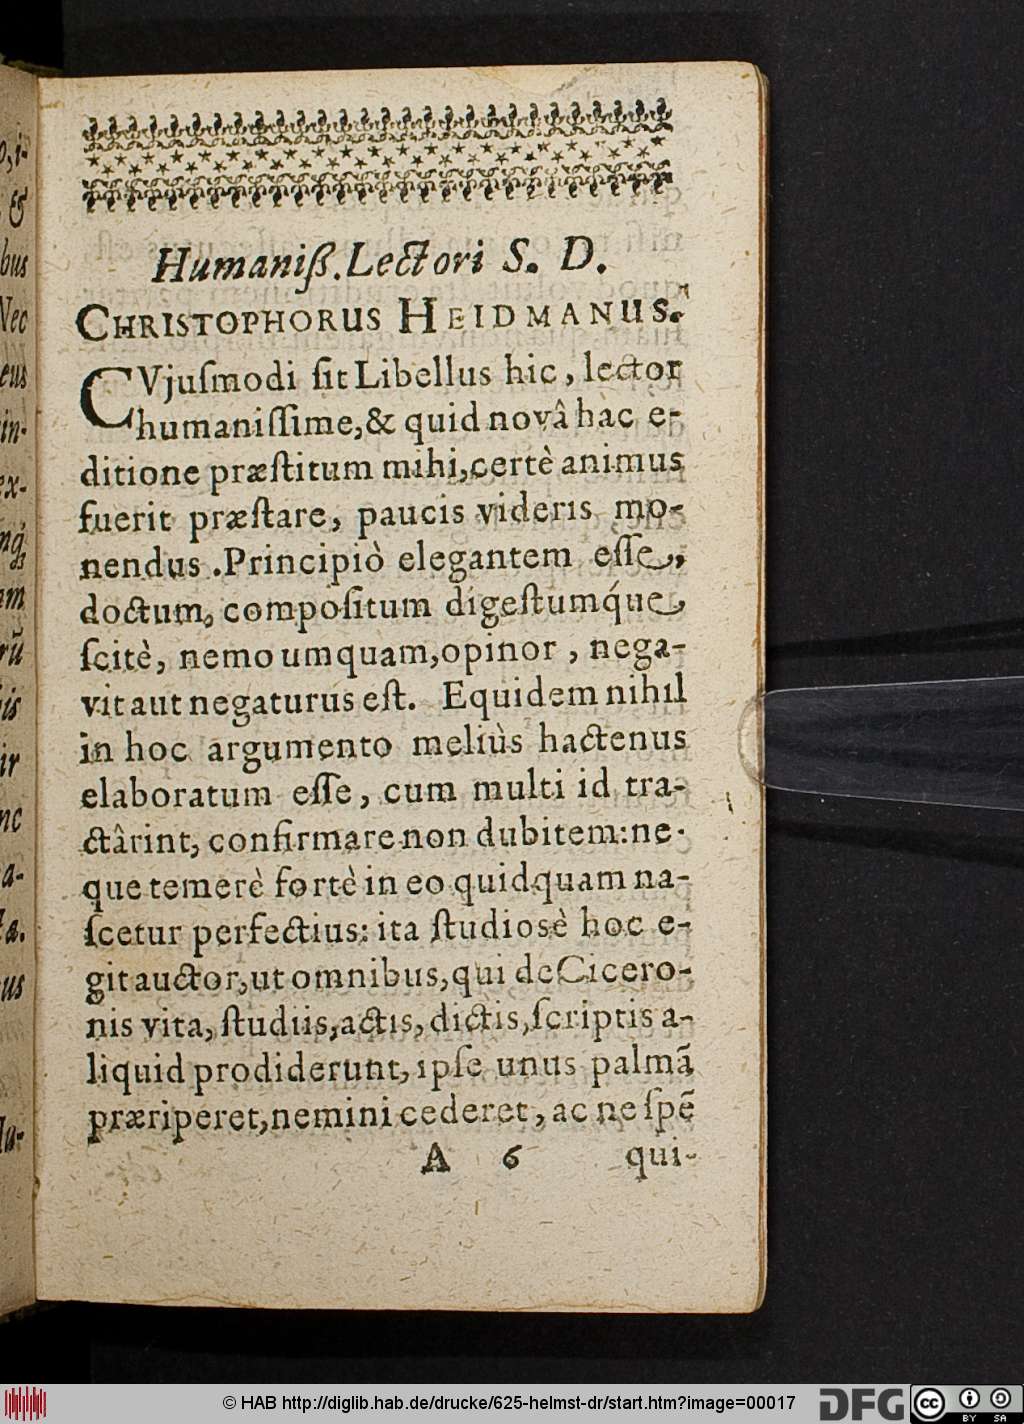 Humaniß. Lectori S. D.
CHRISTOPHORUS HEIDMANUS.
CVjuſmodi ſit Libellus hic, lector
humaniſſime, & quid novâ hac e-
ditione præſtitum mihi, certè animus
fuerit præſtare, paucis videris mo-
nendus. Principiò elegantem eſſe,
doctum, compoſitum digeſtumq́ue,
ſcitè, nemo umquam, opinor, nega-
vit aut negaturus eſt. Equidem nihil
in hoc argumento meliùs hactenus
elaboratum eſſe, cum multi id tra-
ctârint, confirmare non dubitem: ne-
que temerè fortè in eo quidquam na-
ſcetur perfectius: ita ſtudiosè hoc e-
git auctor, ut omnibus, qui de Cicero-
nis vita, ſtudiis, actis, dictis, ſcriptis a-
liquid prodiderunt, ipſe unus palmã
præriperet, nemini cederet, ac ne ſpẽ
A 6 qui-
o, i-
&
bus
Nec
eus
in-
ex-
am
rũ
is
ir
nc
a-
ta.
us
la-
© HAB http://diglib.hab.de/drucke/625-helmst-dr/start.htm?image=00017
DFG
cc
BY SA